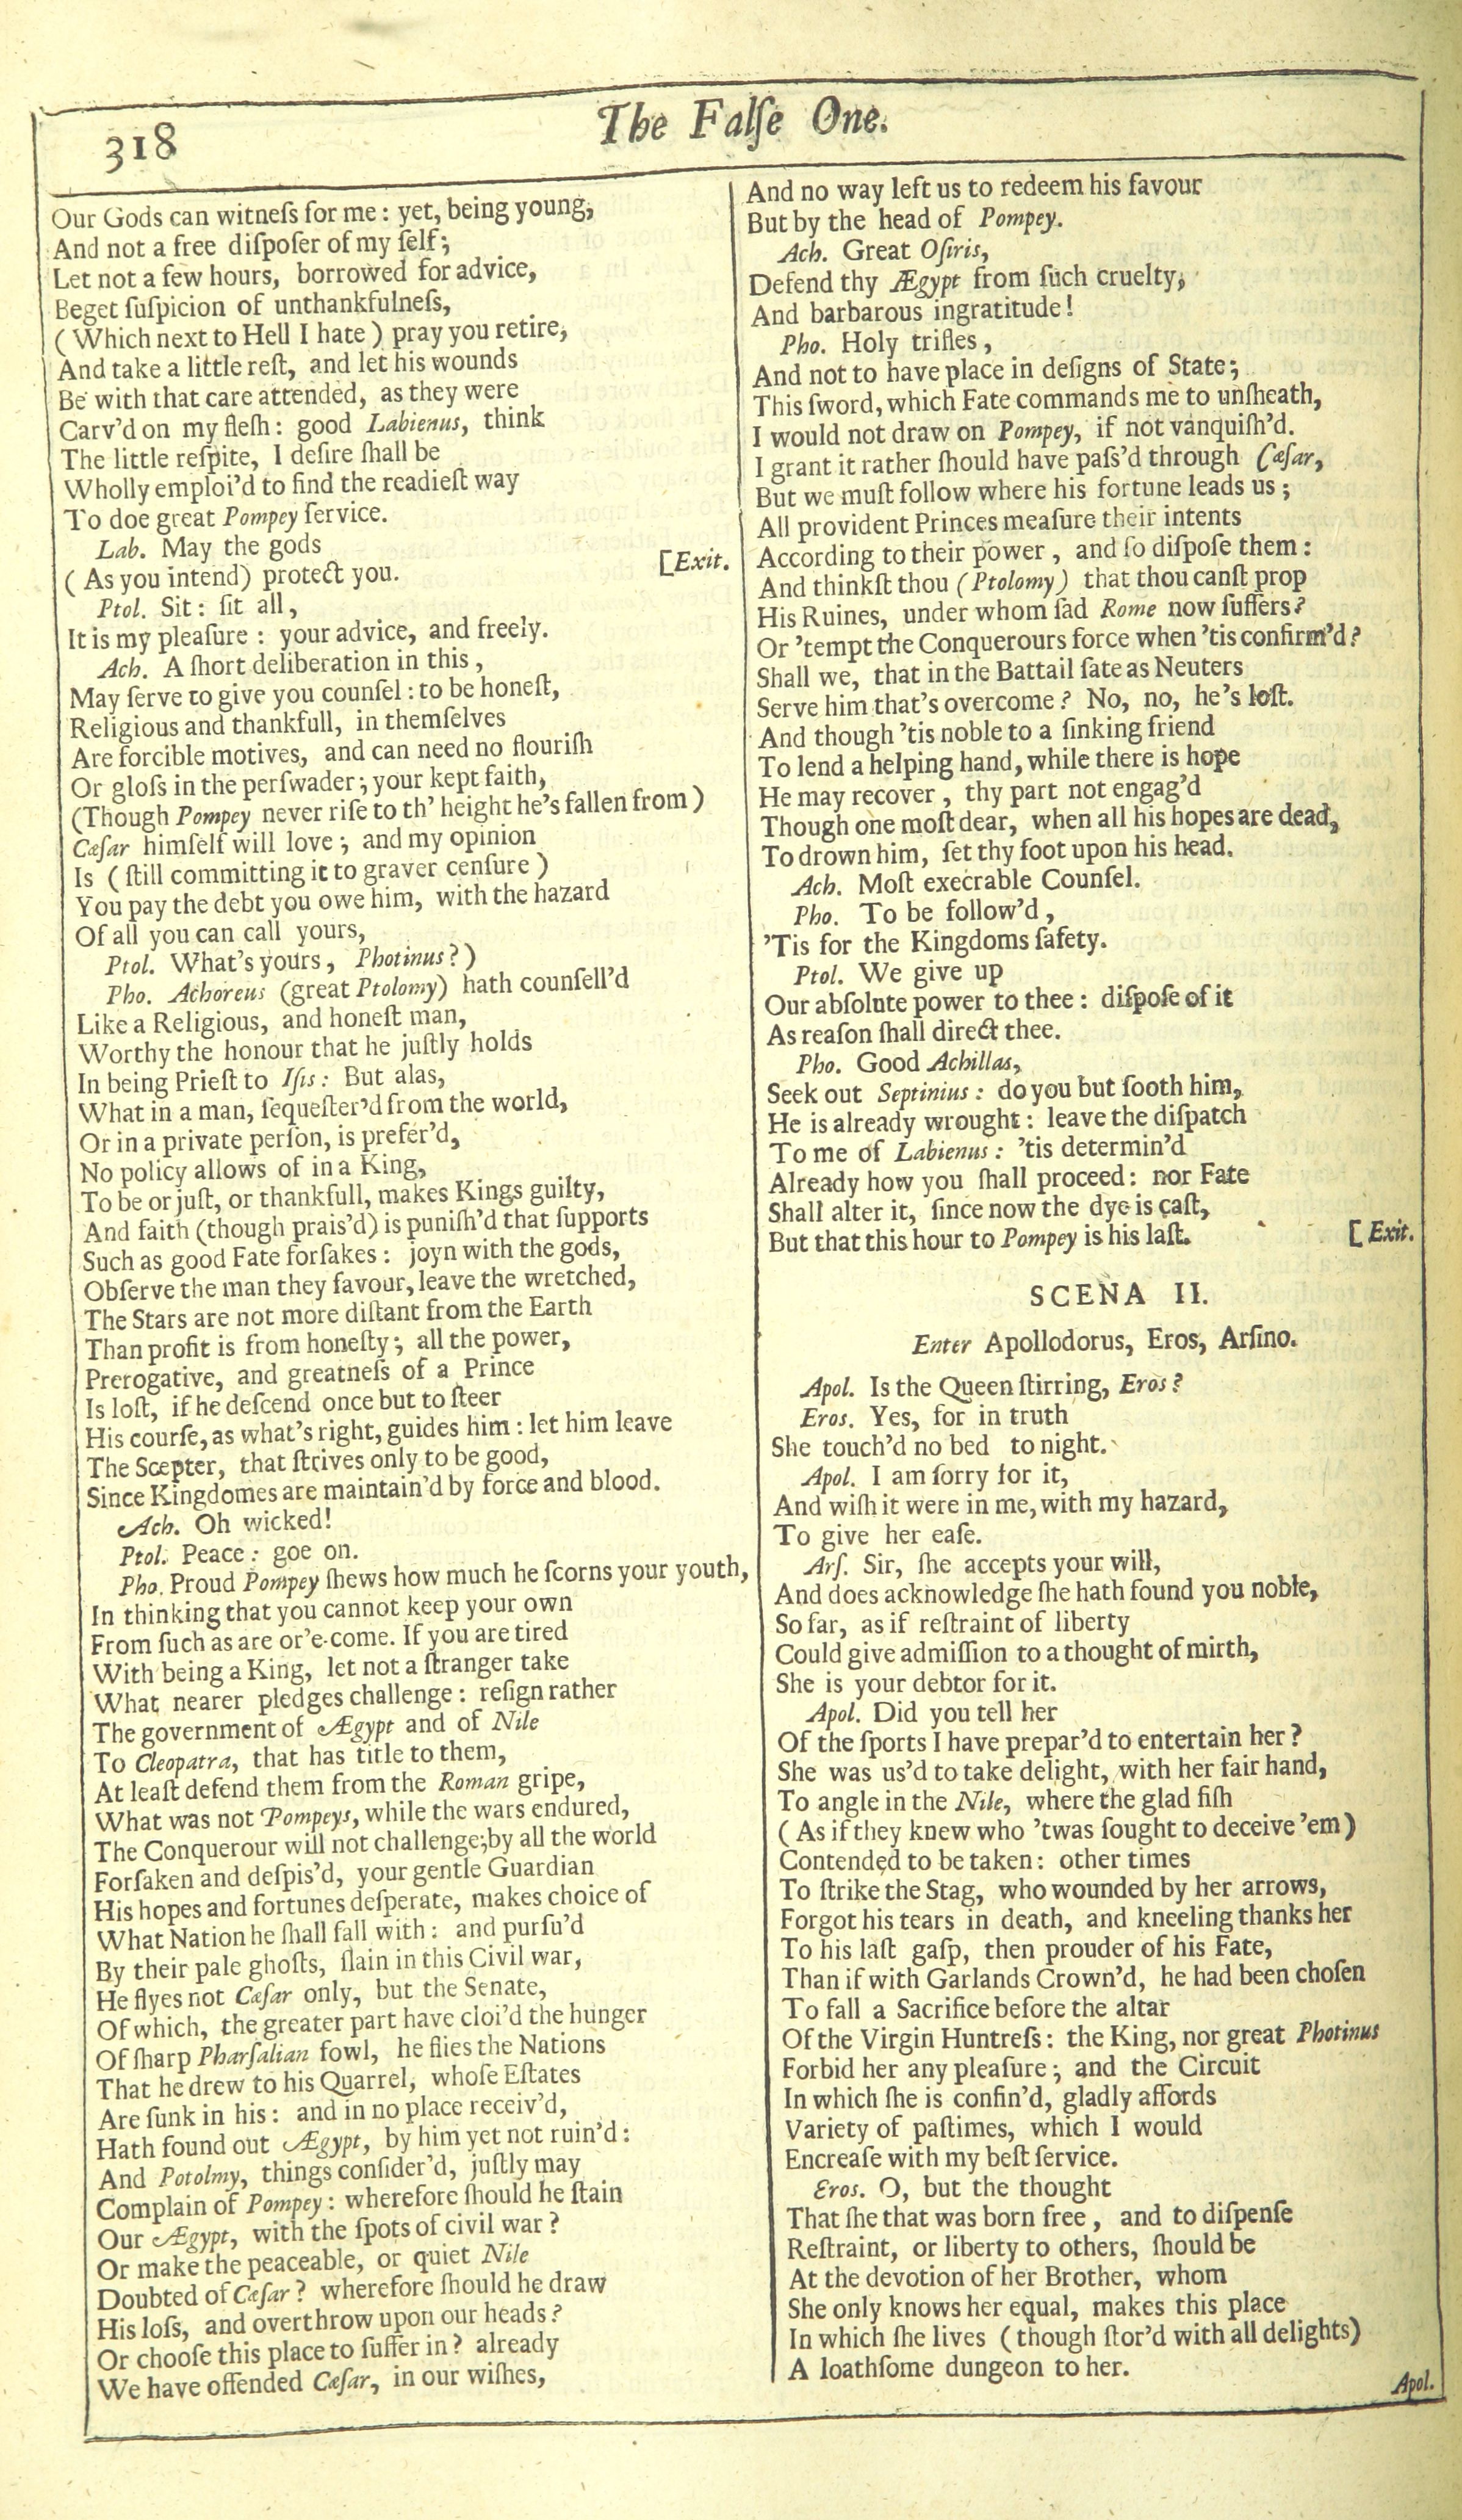 318
The Falſe One.
Our Gods can witneſs for me: yet, being young,
And not a free diſpoſer of my ſelf;
Let not a few hours, borrowed for advice,
Beget ſuſpicion of unthankfulneſs,
(Which next to Hell I hate) pray you retire,
And take a little reſt, and let his wounds
Be with that care attended, as they were
Carv'd on my fleſh: good Labienus, think
The little reſpite, I deſire ſhall be
Wholly emploi'd to find the readieſt way
To doe great Pompey ſervice.
Lab. May the gods
(As you intend) protect you. [Exit.
Ptol. Sit: ſit all,
It is my pleaſure: your advice, and freely.
Ach. A ſhort deliberation in this,
May ſerve to give you counſel: to be honeſt,
Religious and thankfull, in themſelves
Are forcible motives, and can need no flouriſh
Or gloſs in the perſwader; your kept faith,
(Though Pompey never riſe to th' height he's fallen from)
Cæſar himſelf will love; and my opinion
Is (ſtill committing it to graver cenſure)
You pay the debt you owe him, with the hazard
Of all you can call yours,
Ptol. What's yours, Photinus?)
Pho. Achoreus (great Ptolomy) hath counſell'd
Like a Religious, and honeſt man,
Worthy the honour that he juſtly holds
In being Prieſt to Iſis: But alas,
What in a man, ſequeſter'd from the world,
Or in a private perſon, is prefer'd,
No policy allows of in a King,
To be or juſt, or thankfull, makes Kings guilty,
And faith (though prais'd) is puniſh'd that ſupports
Such as good Fate forſakes: joyn with the gods,
Obſerve the man they favour, leave the wretched,
The Stars are not more diſtant from the Earth
Than profit is from honeſty; all the power,
Prerogative, and greatneſs of a Prince
Is loſt, if he deſcend once but to ſteer
His courſe, as what's right, guides him: let him leave
The Scepter, that ſtrives only to be good,
Since Kingdomes are maintain'd by force and blood.
Ach. Oh wicked!
Ptol. Peace: goe on.
Pho. Proud Pompey ſhews how much he ſcorns your youth,
In thinking that you cannot keep your own
From ſuch as are or'e-come. If you are tired
With being a King, let not a ſtranger take
What nearer pledges challenge: reſign rather
The government of Ægypt and of Nile
To Cleopatra, that has title to them,
At leaſt defend them from the Roman gripe,
What was not Pompeys, while the wars endured,
The Conquerour will not challenge; by all the world
Forſaken and deſpis'd, your gentle Guardian
His hopes and fortunes deſperate, makes choice of
What Nation he ſhall fall with: and purſu'd
By their pale ghoſts, ſlain in this Civil war,
He flyes not Cæſar only, but the Senate,
Of which, the greater part have cloi'd the hunger
Of ſharp Pharſalian fowl, he flies the Nations
That he drew to his Quarrel, whoſe Eſtates
Are ſunk in his: and in no place receiv'd,
Hath found out Ægypt, by him yet not ruin'd:
And Potolmy, things conſider'd, juſtly may
Complain of Pompey: wherefore ſhould he ſtain
Our Ægypt, with the ſpots of civil war?
Or make the peaceable, or quiet Nile
Doubted of Cæſar? wherefore ſhould he draw
His loſs, and overthrow upon our heads?
Or chooſe this place to ſuffer in? already
We have offended Cæſar, in our wiſhes,
And no way left us to redeem his favour
But by the head of Pompey.
Ach. Great Oſiris,
Defend thy Ægypt from ſuch cruelty,
And barbarous ingratitude!
Pho. Holy trifles,
And not to have place in deſigns of State;
This ſword, which Fate commands me to unſheath,
I would not draw on Pompey, if not vanquiſh'd.
I grant it rather ſhould have paſs'd through Cæſar,
But we muſt follow where his fortune leads us;
All provident Princes meaſure their intents
According to their power, and ſo diſpoſe them:
And thinkſt thou (Ptolomy) that thou canſt prop
His Ruines, under whom ſad Rome now ſuffers?
Or 'tempt the Conquerours force when 'tis confirm'd?
Shall we, that in the Battail ſate as Neuters
Serve him that's overcome? No, no, he's loſt.
And though 'tis noble to a ſinking friend
To lend a helping hand, while there is hope
He may recover, thy part not engag'd
Though one moſt dear, when all his hopes are dead,
To drown him, ſet thy foot upon his head.
Ach. Moſt execrable Counſel.
Pho. To be follow'd,
'Tis for the Kingdoms ſafety.
Ptol. We give up
Our abſolute power to thee: diſpoſe of it
As reaſon ſhall direct thee.
Pho. Good Achillas,
Seek out Septinius: do you but ſooth him,
He is already wrought: leave the diſpatch
To me of Labienus: 'tis determin'd
Already how you ſhall proceed: nor Fate
Shall alter it, ſince now the dye is caſt,
But that this hour to Pompey is his laſt. [Exit.
SCENA II.
Enter Apollodorus, Eros, Arſino.
Apol. Is the Queen ſtirring, Eros?
Eros. Yes, for in truth
She touch'd no bed to night.
Apol. I am ſorry for it,
And wiſh it were in me, with my hazard,
To give her eaſe.
Arſ. Sir, ſhe accepts your will,
And does acknowledge ſhe hath found you noble,
So far, as if reſtraint of liberty
Could give admiſſion to a thought of mirth,
She is your debtor for it.
Apol. Did you tell her
Of the ſports I have prepar'd to entertain her?
She was us'd to take delight, with her fair hand,
To angle in the Nile, where the glad fiſh
(As if they knew who 'twas ſought to deceive 'em)
Contended to be taken: other times
To ſtrike the Stag, who wounded by her arrows,
Forgot his tears in death, and kneeling thanks her
To his laſt gaſp, then prouder of his Fate,
Than if with Garlands Crown'd, he had been choſen
To fall a Sacrifice before the altar
Of the Virgin Huntreſs: the King, nor great Photinus
Forbid her any pleaſure; and the Circuit
In which ſhe is confin'd, gladly affords
Variety of paſtimes, which I would
Encreaſe with my beſt ſervice.
Eros. O, but the thought
That ſhe that was born free, and to diſpenſe
Reſtraint, or liberty to others, ſhould be
At the devotion of her Brother, whom
She only knows her equal, makes this place
In which ſhe lives (though ſtor'd with all delights)
A loathſome dungeon to her.
Apol.